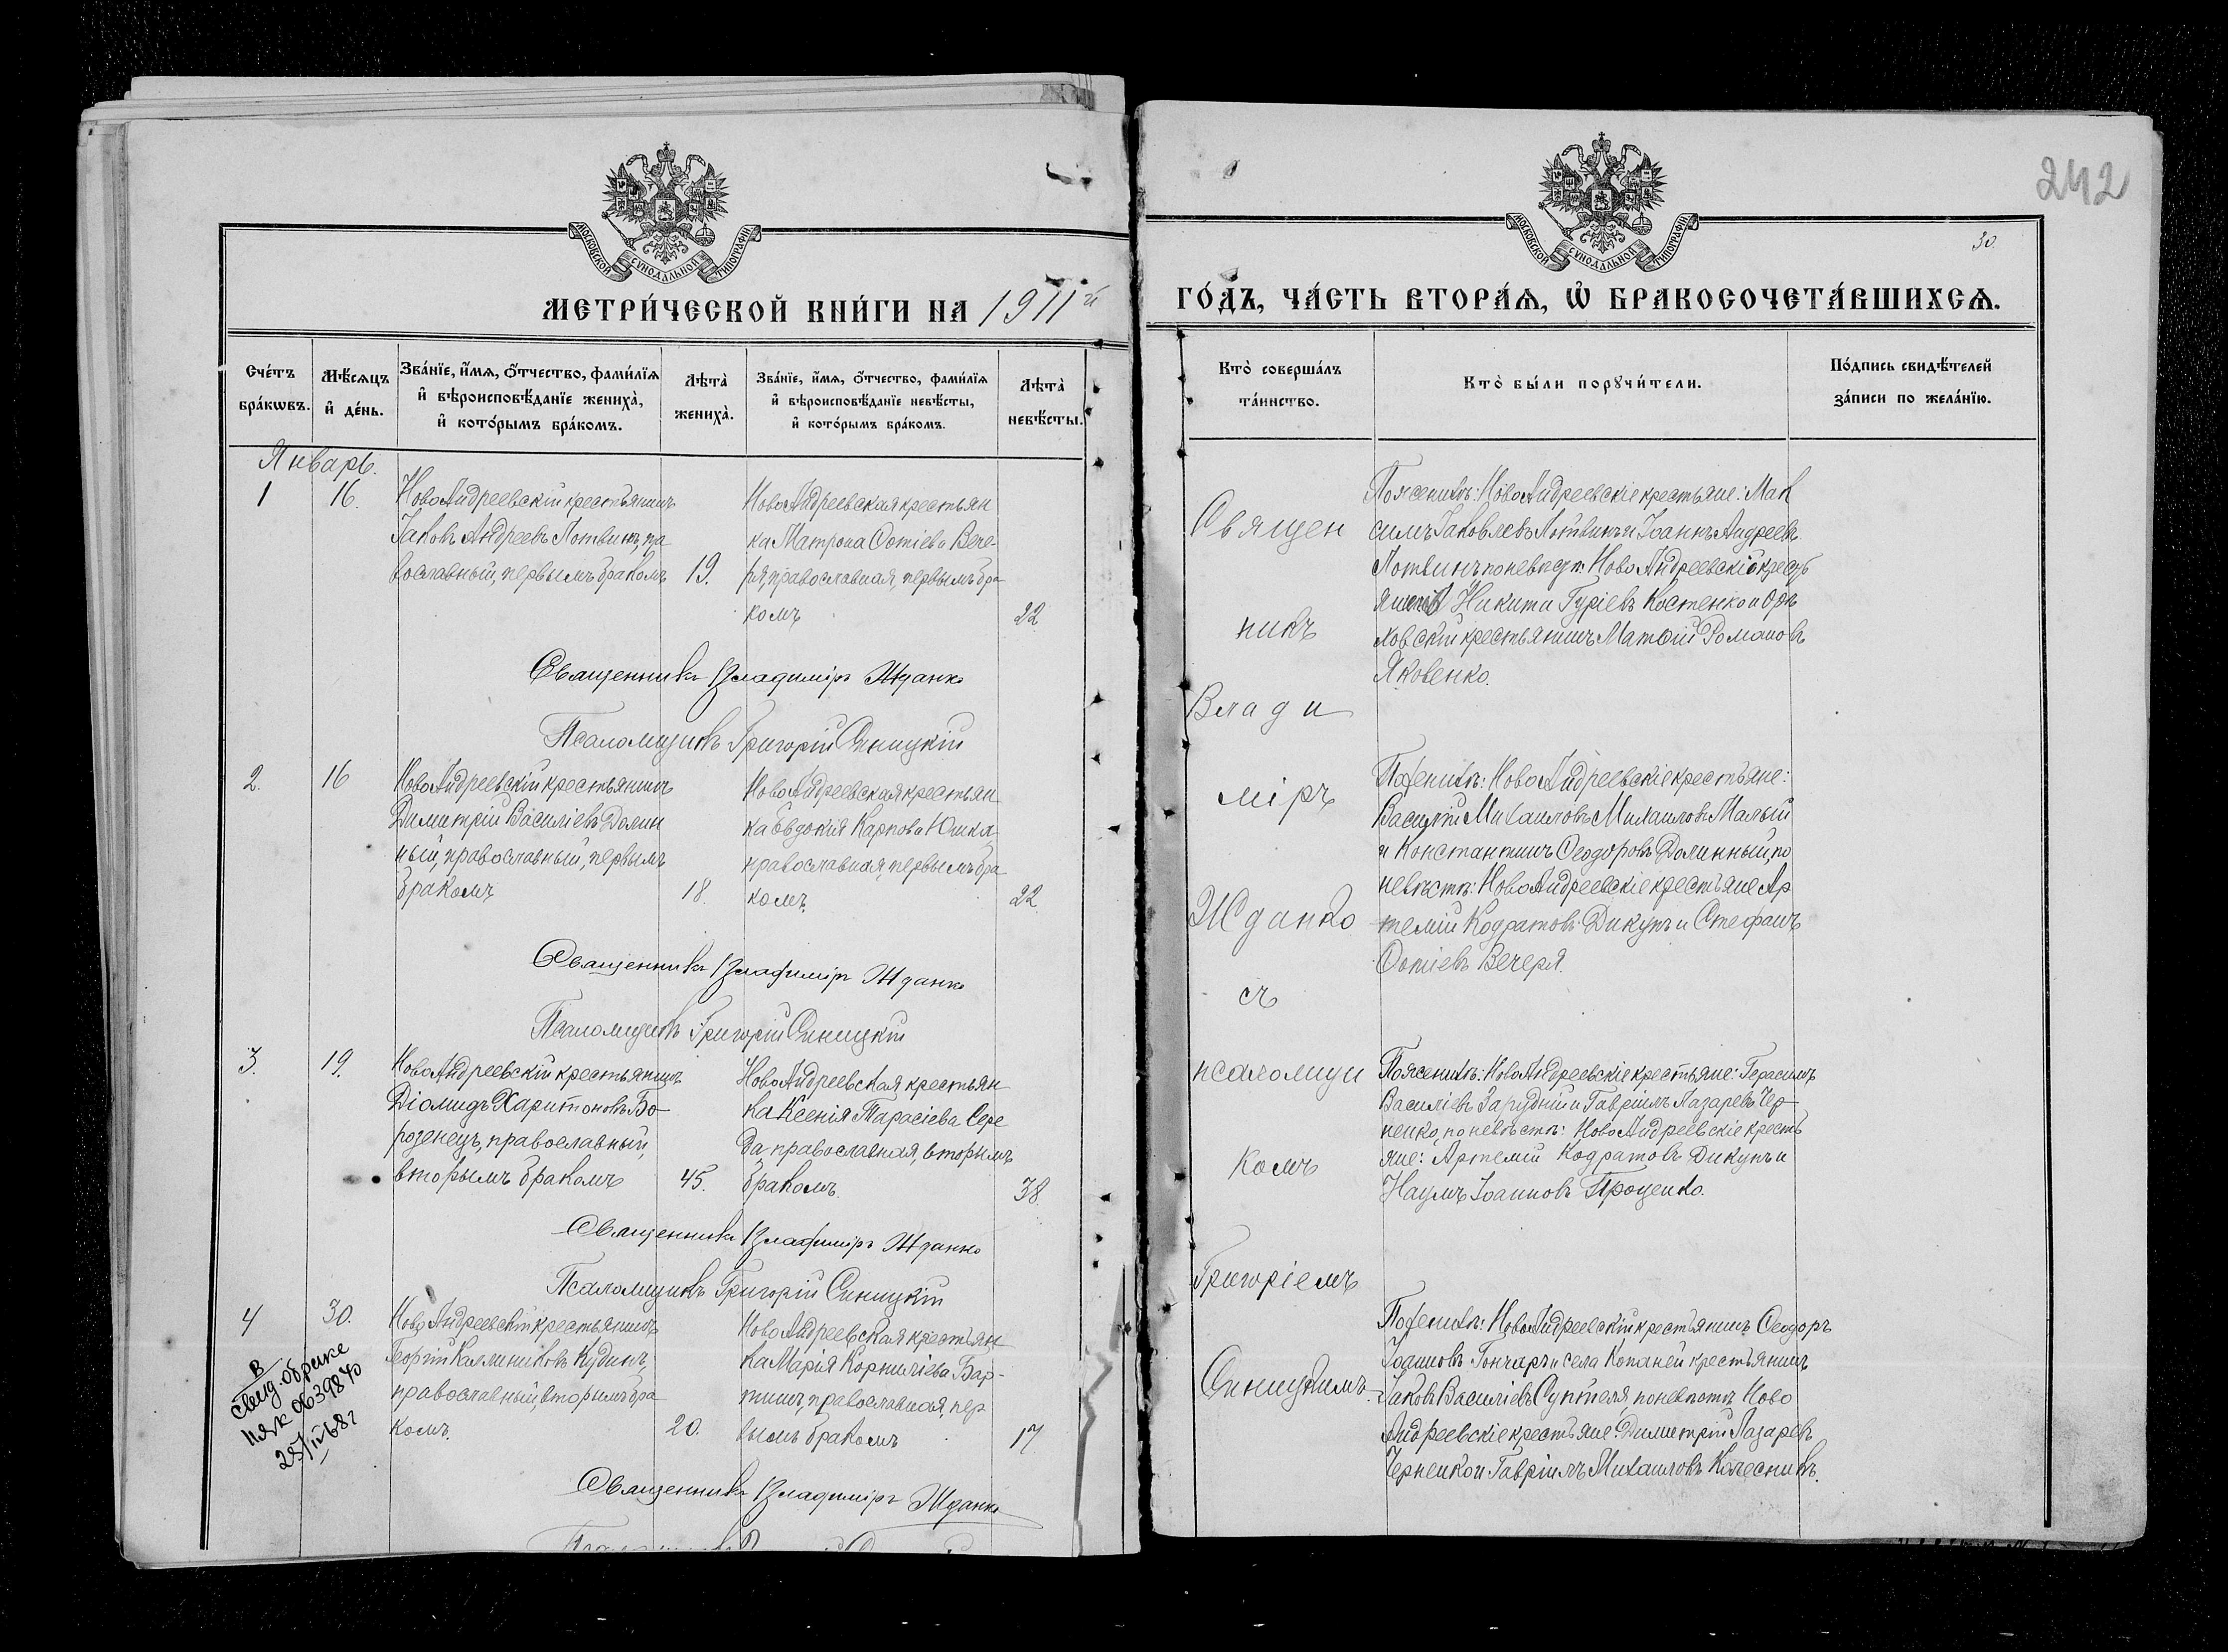 МОСКОВСКОЙ СУНОДАЛЬНОЙ ТИПОГРАФІИ
МЕТРИ́ЧЕСКОЙ КНИ́ГИ НА 1911й
Сче́тъ бра́кωвъ.
Мѣ́сѧцъ и҆ де́нь.
Зва́нїе, и҆́мѧ, ѻ҆́тчество, фами́лїѧ
и҆ вѣроисповѣ́данїе жениха̀,
и҆ кото́рымъ бра́комъ.
Лѣта̀ жениха̀.
Зва́нїе, и҆́мѧ, ѻ҆́тчество, фами́лїѧ
и҆ вѣроисповѣ́данїе невѣ́сты,
и҆ кото́рымъ бра́комъ.
Лѣта̀ невѣ́сты.
Январь.
1
16.
НовоАндреевскій крестьянинъ
Іаковъ Андреевъ Потвинъ, пра
вославный, первымъ бракомъ
19.
НовоАндреевская крестьян
ка Матрона Фотіева Вече-
ря, православная, первымъ бра
комъ
22
Священникъ Владиміръ Жданко
Псаломщикъ Григорій Синицкій
2.
16
НовоАндреевскій крестьянинъ
Димитрій Василіевъ Долин
ный, православный, первымъ
бракомъ
18.
НовоАндреевская крестьян
ка Евдокія Карпова Юшка
православная, первымъ бра
комъ.
22.
Священникъ Владиміръ Жданко
Псаломщикъ Григорій Синицкій
3.
19.
НовоАндреевскій крестьянинъ
Діомидъ Харитоновъ Бо-
розенецъ, православный,
вторымъ бракомъ
45.
НовоАндреевская крестьян
ка Ксенія Тарасіева Сере
да, православная, вторымъ
бракомъ.
38.
Священникъ Владиміръ Жданко
Псаломщикъ Григорій Синицкій
4
30.
НовоАндреевскій крестьянинъ
Георгій Каллиниковъ Кудинъ,
православный, вторымъ бра
комъ.
20.
НовоАндреевская крестьян
ка Марія Корниліева Бар-
тишъ, православная, пер
вымъ бракомъ
17
В
свид. о браке
II ЯК 0639840
25/IV 68 г
Священникъ Владиміръ Жданко
242
30.
МОСКОВСКОЙ СУНОДАЛЬНОЙ ТИПОГРАФІИ
ГО́ДЪ, ЧА́СТЬ ВТОРА́Ѧ, Ѡ҆ БРАКОСОЧЕТА́ВШИХСѦ.
Кто̀ соверша́лъ
та́инство.
Кто̀ бы́ли порꙋчи́тели.
По́дпись свидѣ́телей
за́писи по жела́нїю.
Священ
никъ
Влади
міръ
Жданко
съ
псаломщи
комъ
Григоріемъ
Синицкимъ
По женихѣ: НовоАндреевскіе крестьяне: Мак
симъ Іаковлевъ Потвинъ и Іоаннъ Андреевъ
Потвинъ по невѣст. НовоАндреевскій кресть
янинъ Никита Гуріевъ Костенко и Орѣ
ховскій крестьянинъ Матѳій Романовъ
Яковенко.
По женихѣ: НовоАндреевскіе крестьяне:
Василій Михаиловъ Михаиловъ Малый
и Константинъ Ѳеодоровъ Долинный, по
невѣстѣ: НовоАндреевскіе крестьяне Ар
темій Кодратовъ Дикунъ и Стефанъ
Фотіевъ Вечеря.
По женихѣ: НовоАндреевскіе крестьяне: Герасимъ
Василіевъ Зарудній и Гавріилъ Лазаревъ Чер-
ненко, по невѣстѣ: НовоАндреевскіе кресть
яне: Артемій Кодратовъ Дикунъ и
Наумъ Іоанновъ Проценко.
По женихѣ: НовоАндреевскій крестьянинъ Ѳеодоръ
Іоанновъ Гончаръ и села Копаней крестьянинъ
Іаковъ Василіевъ Суптеля, по невѣстѣ Ново
Андреевскіе крестьяне: Димитрій Лазаревъ
Черненко и Гавріилъ Михаиловъ Колесникъ.